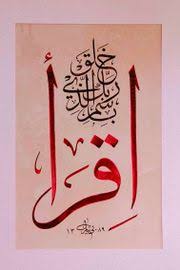 اِقرأ
باسم
ربك الذي
خلق